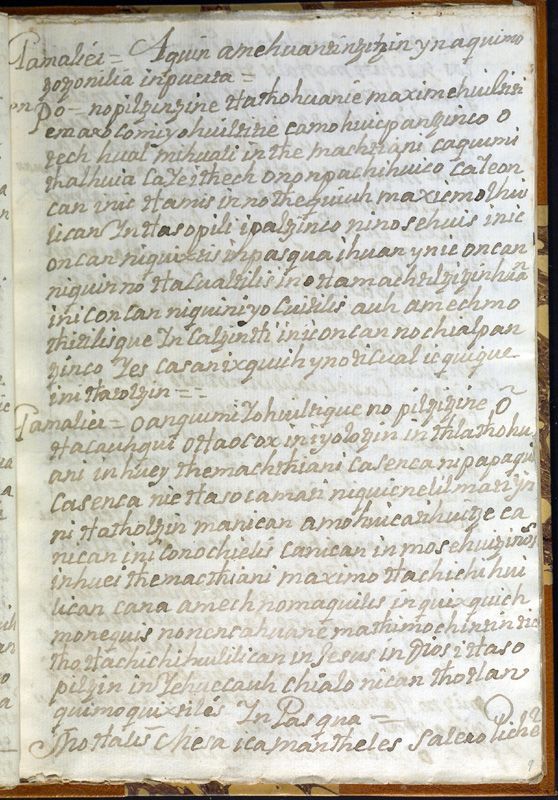 Tamalier = Aquin amehuantzintzitzin yn aquimo
tzotzonilia inpuerta =
Po - nopiltzintzine tlathohuanie maximehuiltiti
emaxocomiyohuiltitie camohuicpantzinco o
tech hual mihuali inthe machtiani caquimi
thalhuia caYeithech ononpachihuico caleon
can inic tlamis innothequiuh maxicmolhui
lican Yn tlasopili ipaltzinco ninosehuis inic
oncan niquixtis inpasqua ihuan ynic oncan
niquinno tlacualtilis inotlamachtiltzitzinhuã
iniconcan niquiniyocuitilis auh amechmo
thitilisque Yn Caltzintli iniconcan nochialpan
tzinco Yes casanixquich ynoticual icquique
ini tlatoltzin = =
Tamalier = oanquimiyohuiltique nopiltzitzine, Õ
tlacauhqui otlaocox iniyolotzin in thlathohu
ani inhuey themachthiani casenca nipapaqui
Casenca nictlasocamati niquicnelilmati yn
ni tlatholtzin manican amohuicatzhuitze ca
nican iniconochielis canican inmosehuitzinos
inhuei themacthiani maximotlachichihui
lican cana amechnomaquilis inquixquich
monequis nonencahuane mathimochintin tic
tho tlachichihuililican in Jesus in Dios itlaso
piltzin in Yehuecauh chialo nican thotlan
quimoquixtiles Yn Pasqua =
Thotlalis Mesa ica mantheles salero Piche